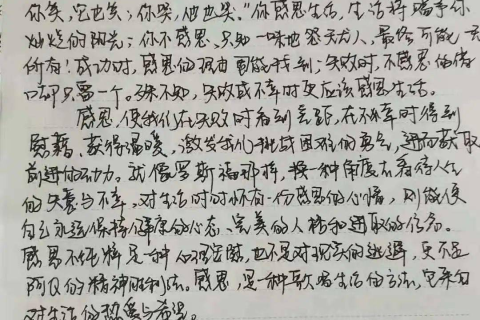 你笑,它也笑;你哭,他也哭。"你感恩生活,生活将赐予你
灿烂的阳光;你不感恩,只知一味地怨天尤人,最终可能一无
所有!成功时,感恩的理由固然能找到;失败时,不感恩的借
口却只需一个。殊不知,失败或不幸时更应该感恩生活。
感恩,使我们在失败时看到差距,在不幸时得到
慰藉、获得温暖,激发我们挑战困难的勇气,进而获取
前进的动力。就像罗斯福那样,换一种角度去看待人生
的失意与不幸,对生活时时怀有一份感恩的心情,则能使
自己永远保持健康的心态、完美的人格和进取的信念。
感恩不纯粹是一种心理安慰,也不是对现实的逃避,更不是
阿Q的精神胜利法。感恩,是一种歌唱生活的方式,它来自
对生活的热爱与希望。